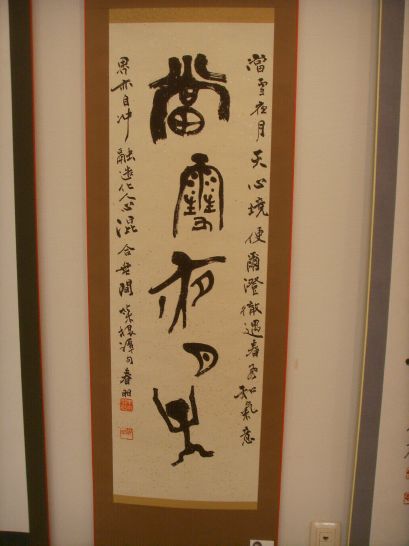 當雪夜月天
當雪夜月天心境便爾澄徹遇春風和氣意
界亦自沖融造化人心混合無間菜根譚句春